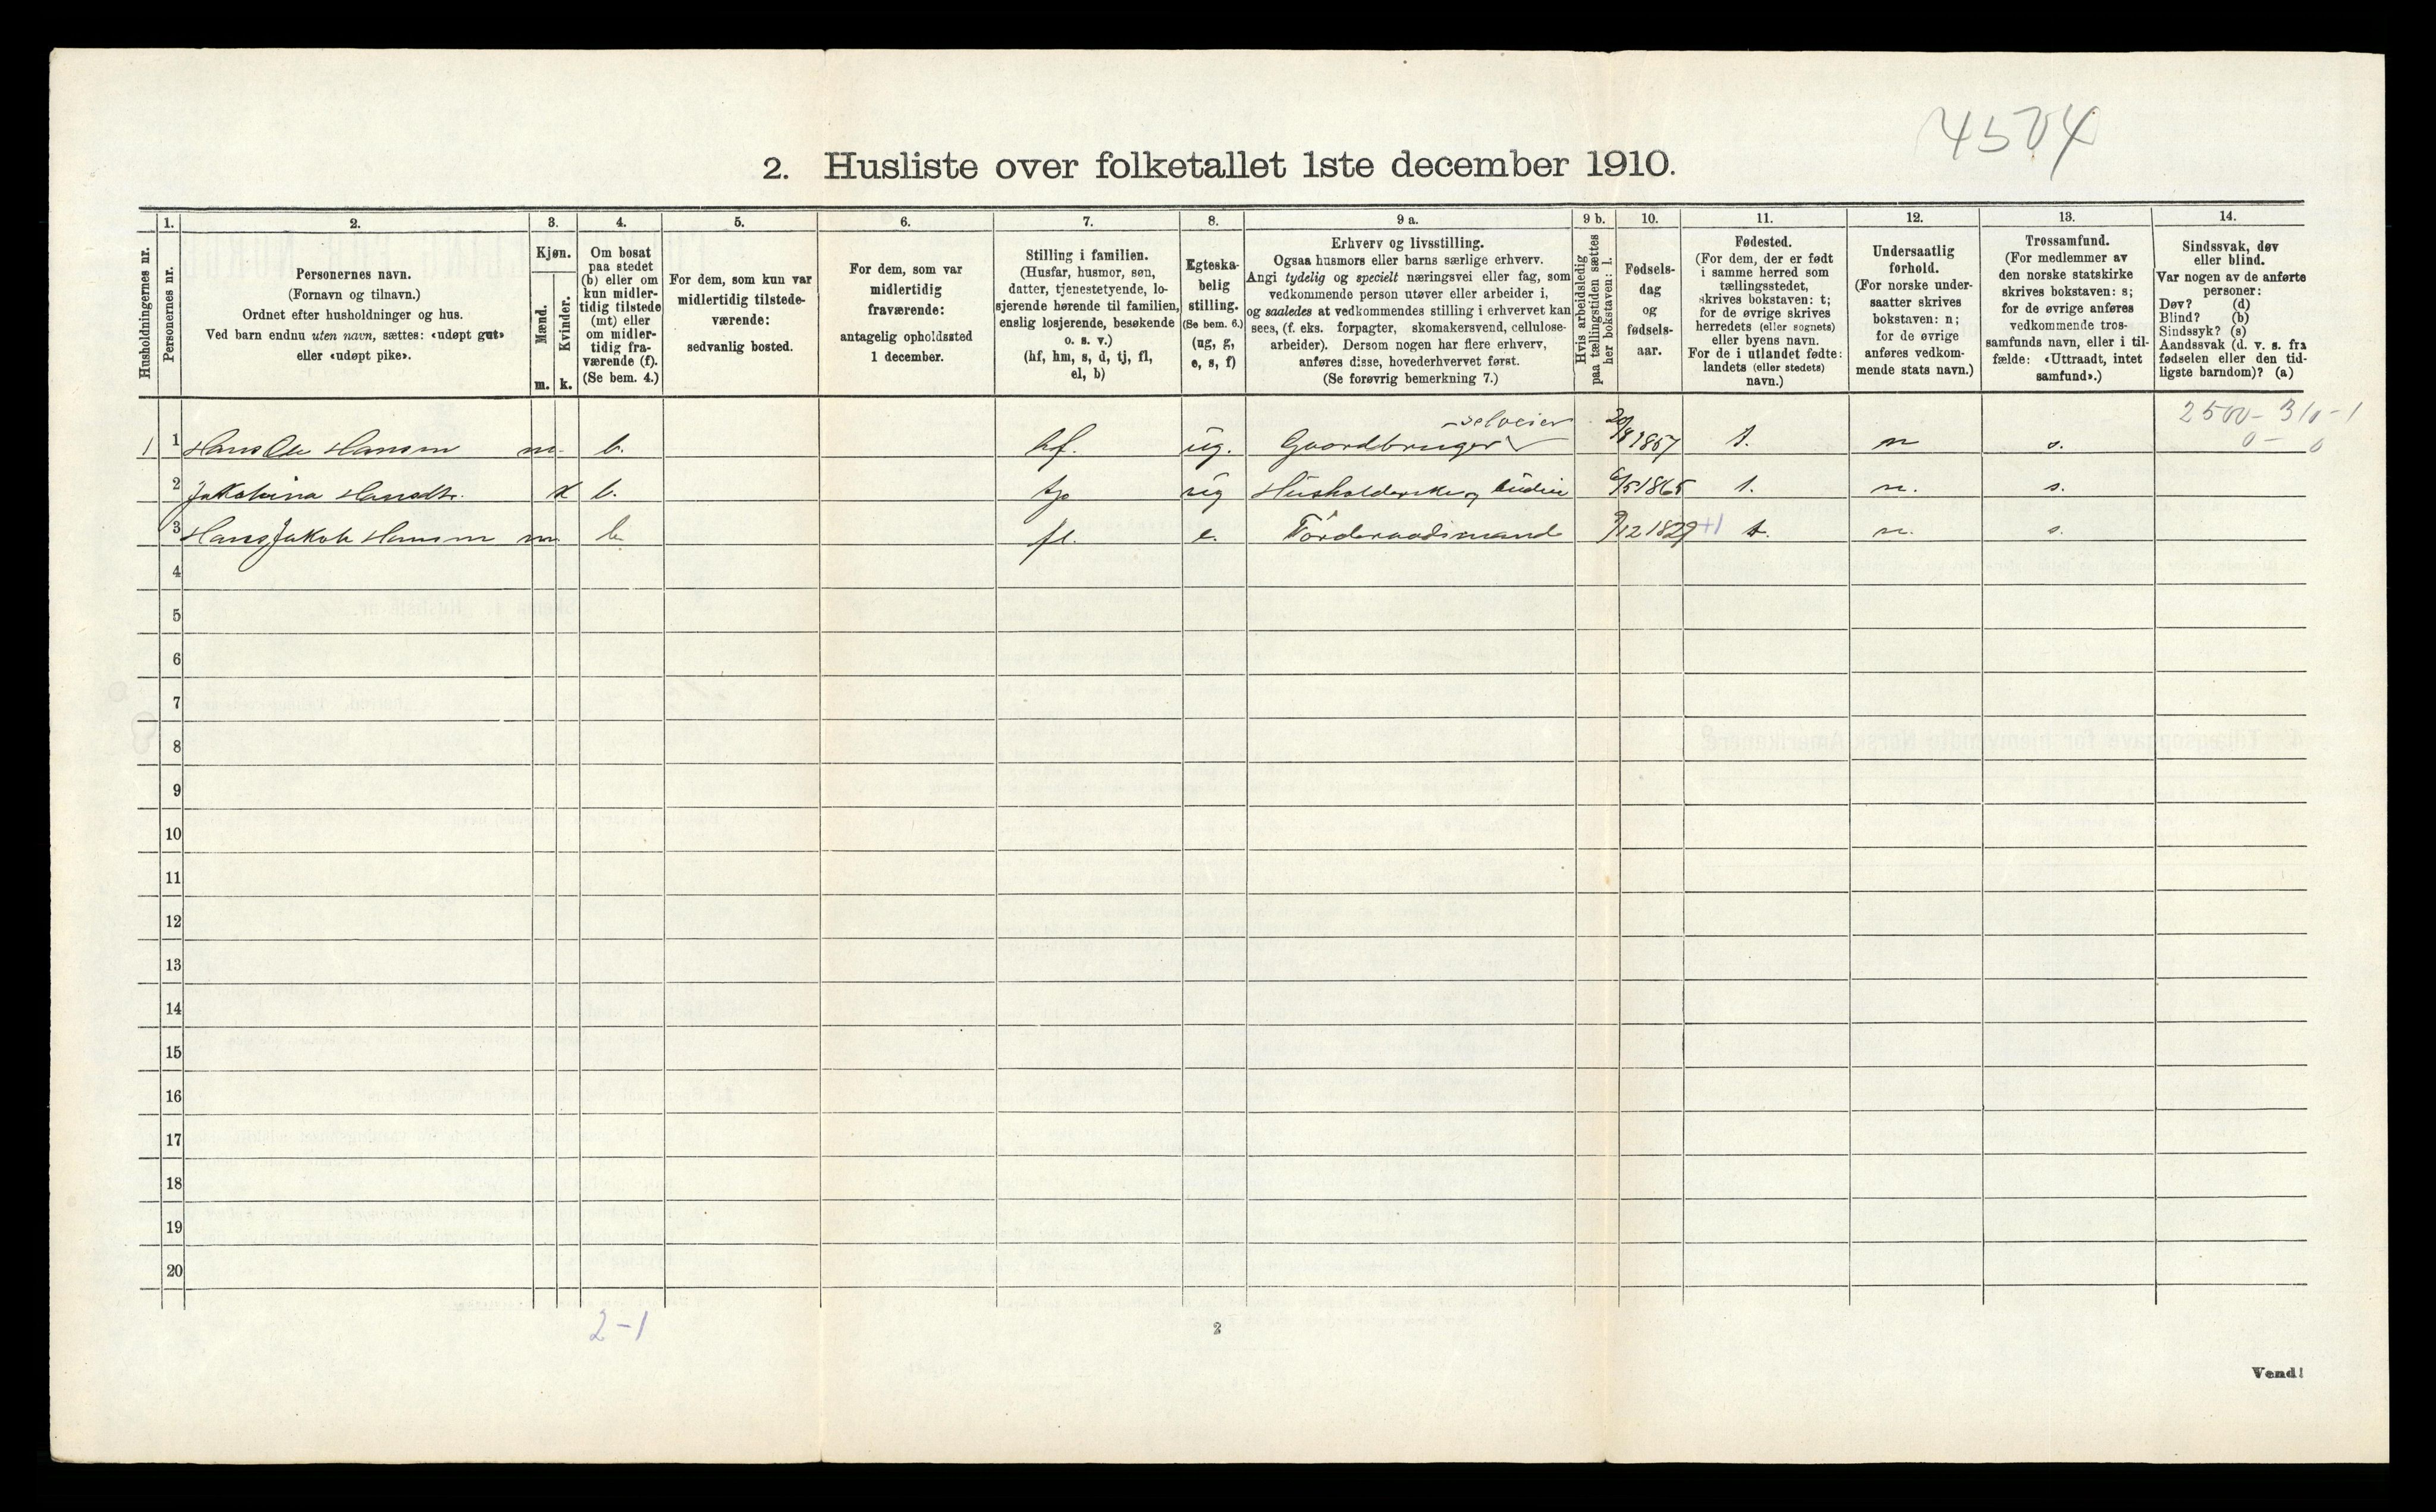 2. Husliste over folketallet 1ste december 1910.
4504
Husholdningernes nr.
1.
Personernes nr.
2.
Personernes navn.
(Fornavn og tilnavn.)
Ordnet efter husholdninger og hus.
Ved barn endnu uten navn, sættes: «udøpt gut»
eller «udøpt pike».
3.
Kjøn.
Mænd.
m.
Kvinder.
k.
4.
Om bosat
paa stedet
(b) eller om
kun midler-
tidig tilstede
(mt) eller
om midler-
tidig fra-
værende (f).
(Se bem. 4.)
5.
For dem, som kun var
midlertidig tilstede-
værende:
sedvanlig bosted.
6.
For dem, som var
midlertidig
fraværende:
antagelig opholdssted
1 december.
7.
Stilling i familien.
(Husfar, husmor, søn,
datter, tjenestetyende, lo-
sjerende hørende til familien,
enslig losjerende, besøkende
o. s. v.)
(hf, hm, s, d, tj, fl,
el, b)
8.
Egteska-
belig
stilling.
(Se bem. 6.)
(ug, g,
e, s, f)
9 a.
Erhverv og livsstilling.
Ogsaa husmors eller barns særlige erhverv.
Angi tydelig og specielt næringsvei eller fag, som
vedkommende person utøver eller arbeider i,
og saaledes at vedkommendes stilling i erhvervet kan
sees, (f. eks. forpagter, skomakersvend, cellulose-
arbeider). Dersom nogen har flere erhverv,
anføres disse, hovederhvervet først.
(Se forøvrig bemerkning 7.)
9 b.
Hvis arbeidsledig
paa tællingstiden sættes
her bokstaven: l.
10.
Fødsels-
dag
og
fødsels-
aar.
11.
Fødested.
(For dem, der er født
i samme herred som
tællingsstedet,
skrives bokstaven: t;
for de øvrige skrives
herredets (eller sognets)
eller byens navn.
For de i utlandet fødte:
landets (eller stedets)
navn.)
12.
Undersaatlig
forhold.
(For norske under-
saatter skrives
bokstaven: n;
for de øvrige
anføres vedkom-
mende stats navn.)
13.
Trossamfund.
(For medlemmer av
den norske statskirke
skrives bokstaven: s;
for de øvrige anføres
vedkommende tros-
samfunds navn, eller i til-
fælde: «Uttraadt, intet
samfund».)
14.
Sindssvak, døv
eller blind.
Var nogen av de anførte
personer:
Døv? (d)
Blind? (b)
Sindssyk? (s)
Aandssvak (d. v. s. fra
fødselen eller den tid-
ligste barndom)? (a)
1 1 Hans Ole Hansen m. b. hf. ug. Gaardbruger selveier 20/8 1857 t. n s. 2500-310-1
0-0
2 Jakobina Hansdtr. k b. tj ug Husholderske og budeie 6/5 1865 t. n. s.
3 Hans Jakob Hansen m. b. fl. e. Førderaadsmand 9/12 1829 +1 t. n. s.
4
5
6
7
8
9
10
11
12
13
14
15
16
17
18
19
20
2-1
2
Vend!